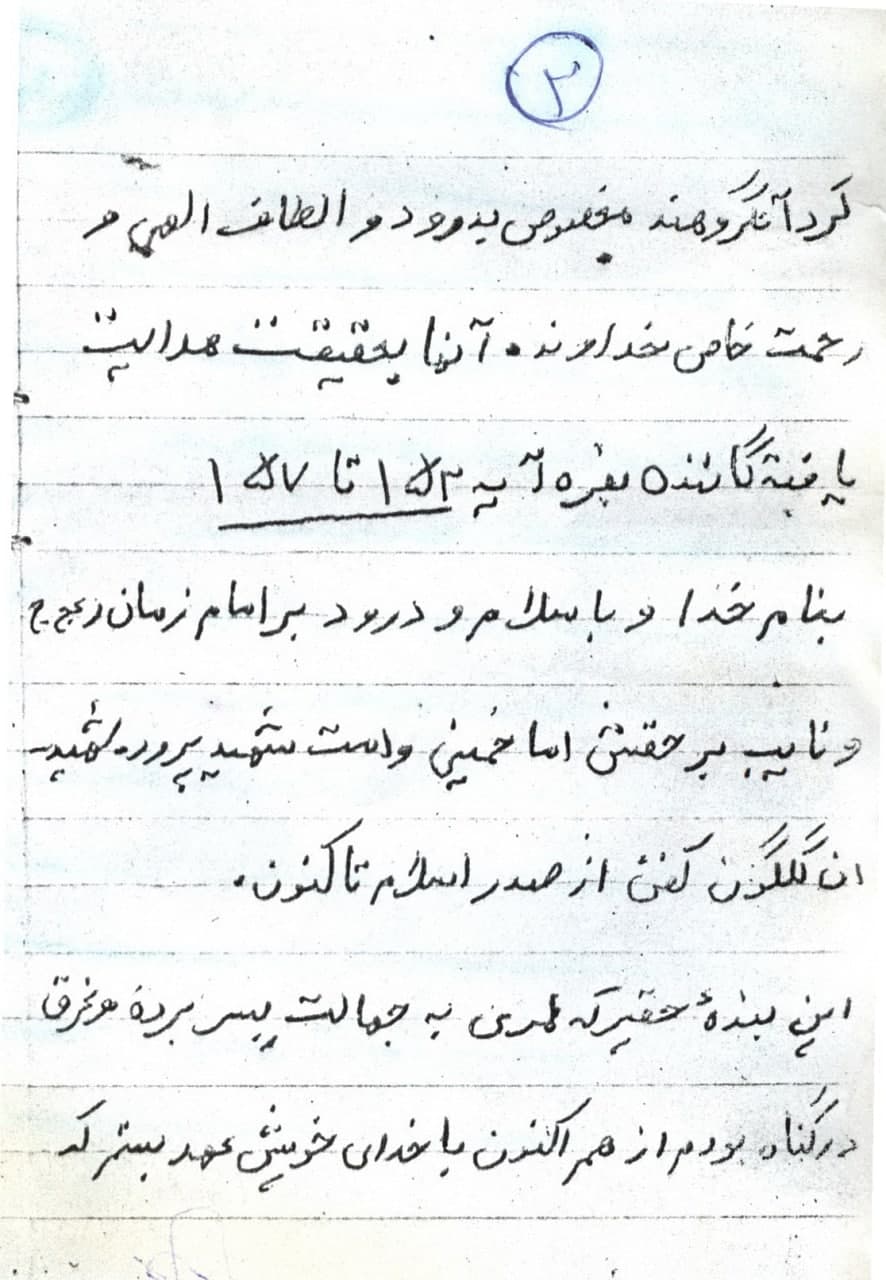 ۲
کرد آنگروهند مخصوص بدرود و الطاف الهی و
رحمت خاص خداوند. آنها بحقیقت هدایت
یافته گانند بقره آیه ۱۵۳ تا ۱۵۷
بنام خدا و با سلام و درود بر امام زمان (عج)
و نایب بر حقش اما خمینی و امت شهید پرور. شهید
ان گلگون کفن از صدر اسلام تا کنون.
این بندهٔ حقیر که عمری به جهالت بسر برده و غرق
در گناه بودم از هم اکنون با خدای خویش عهد بستم که